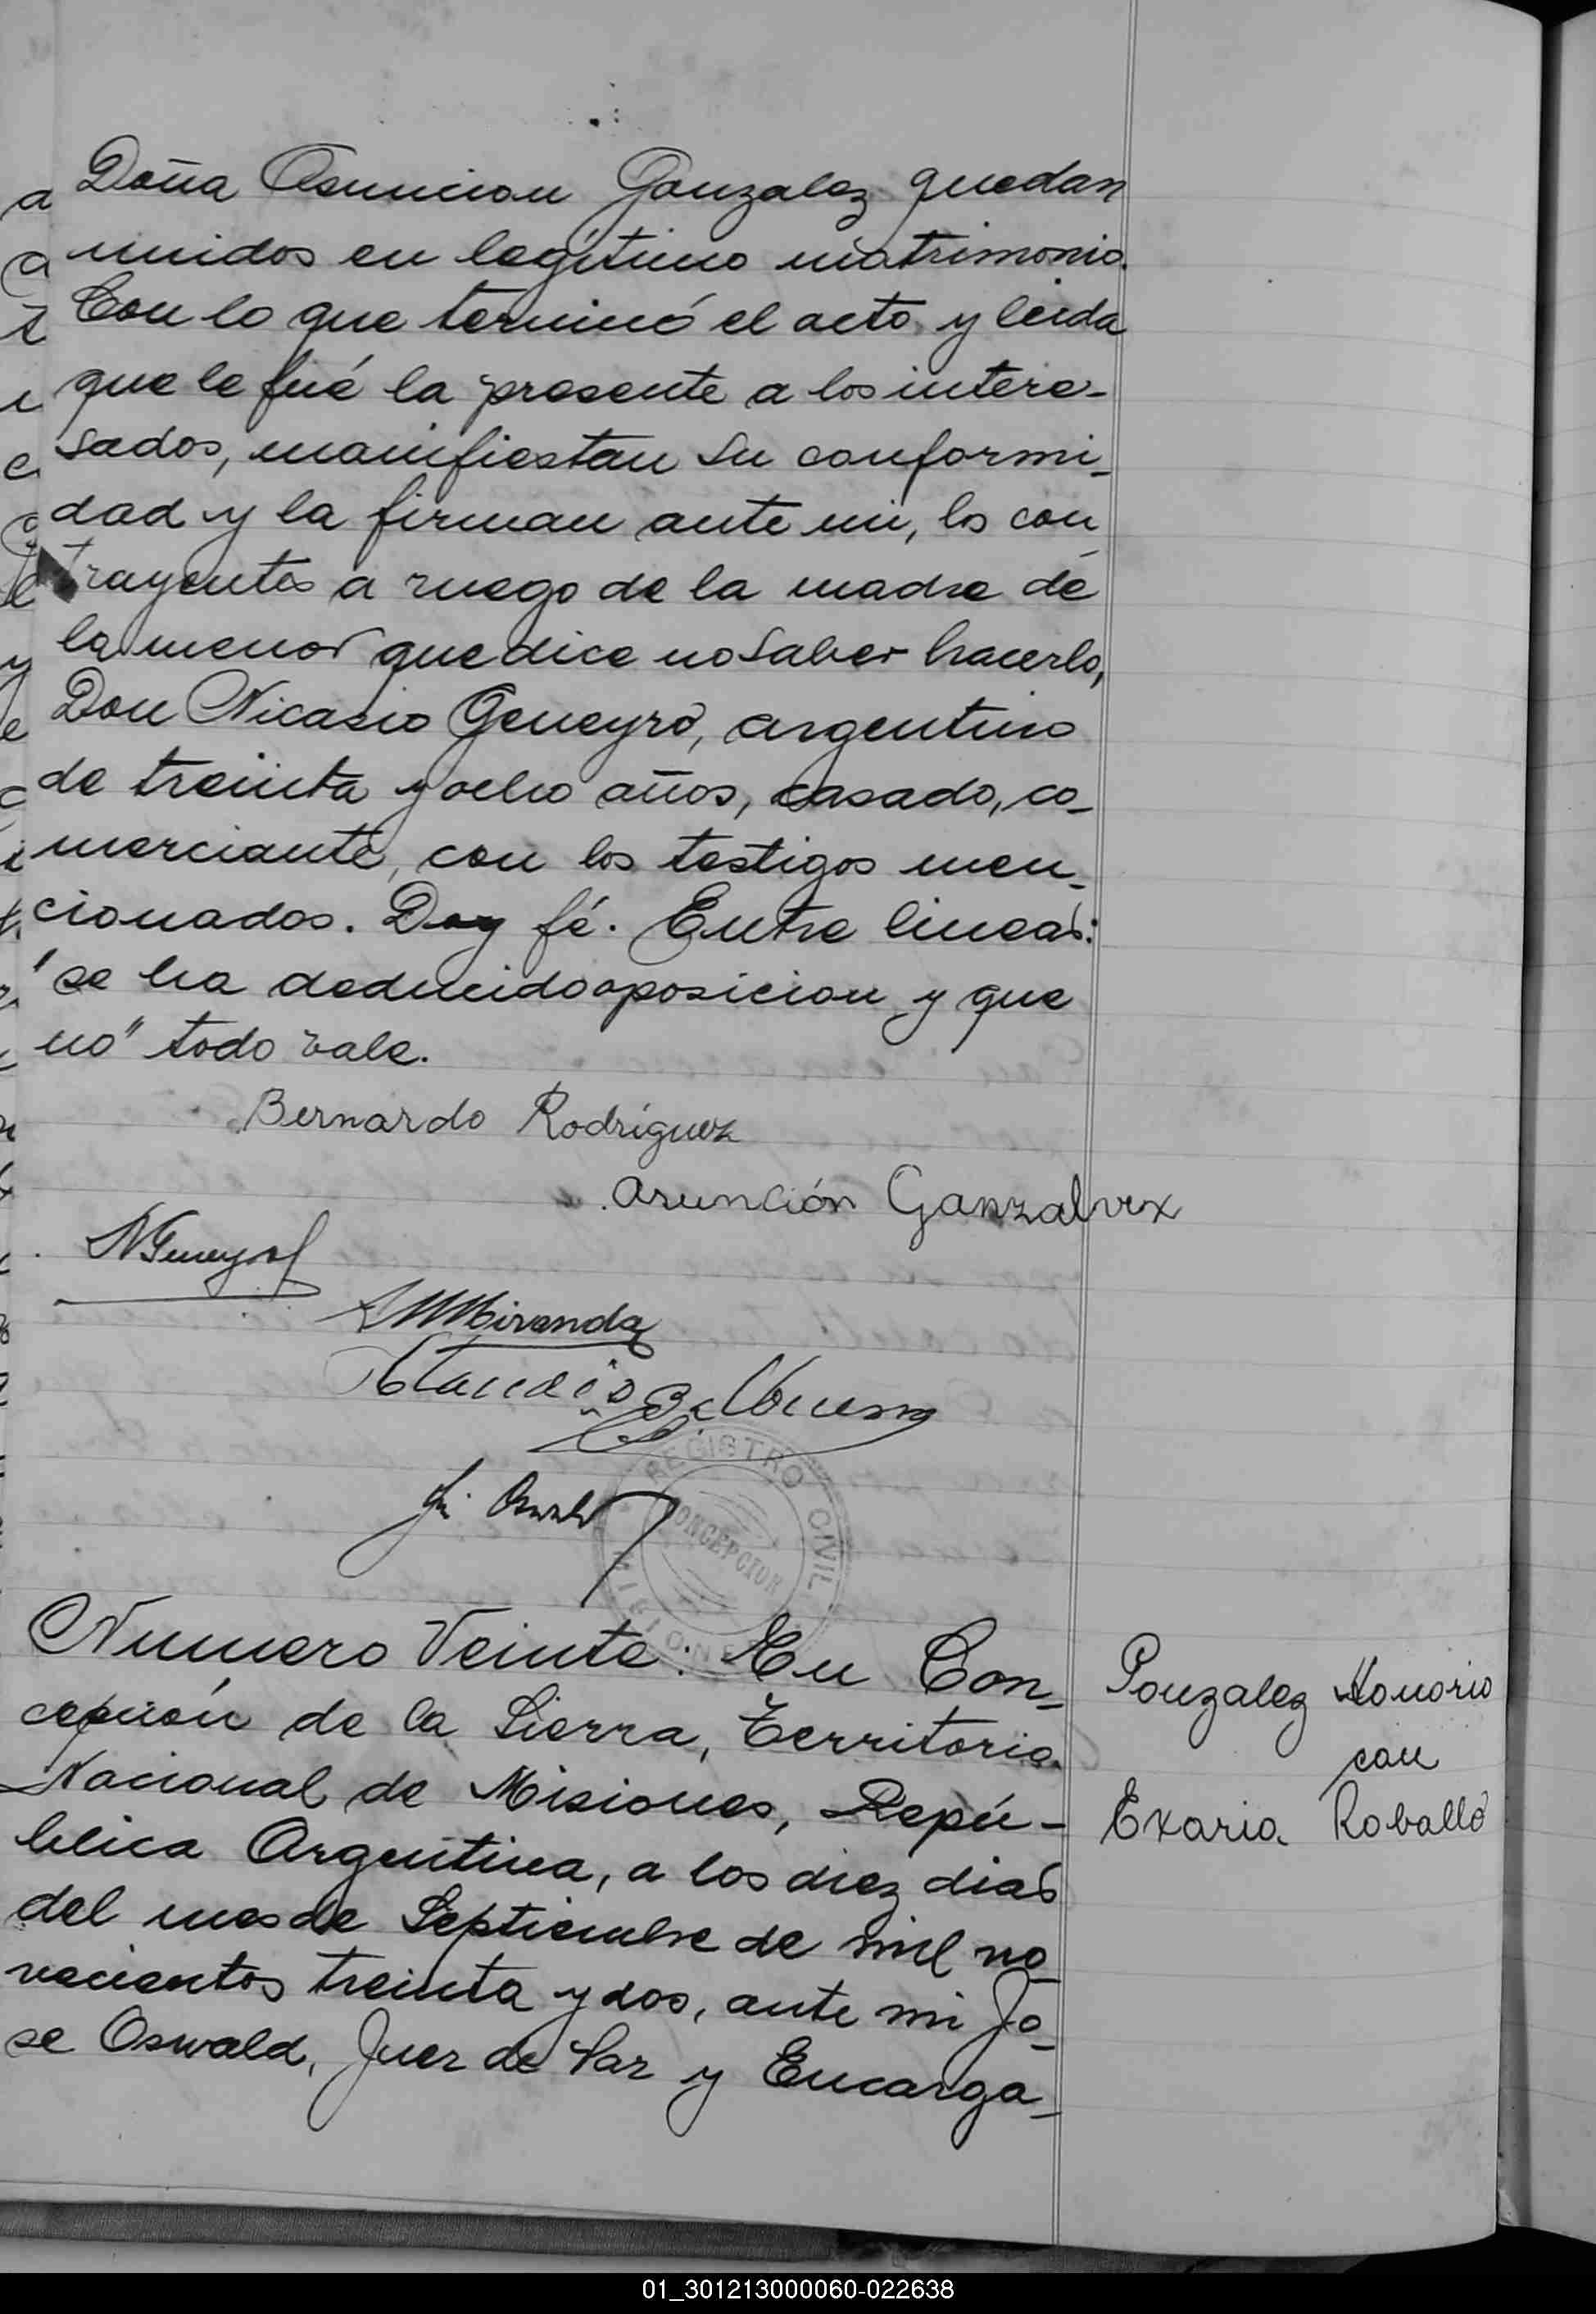 Doña Asuncion Gonzalez quedan
unidos en legítimo matrimonio.
Con lo que terminó el acto y leida
que le fué la presente a los intere-
sados, manifiestan su conformi-
dad y la firman ante mi, los con-
trayentes a ruego de la madre de
la menor que dice no saber hacerlo,
Don Nicasio Geneyro, argentino
de treinta y ocho años, casado, co-
merciante, con los testigos men-
cionados. Doy fé. Entre lineas:
"se ha deducido oposicion y que
no" todo vale.
Bernardo Rodríguez
Asunción Ganzalvez
NGeneyro
Miranda
J. Oswald
REGISTRO CIVIL
CONCEPCION
MISIONES
Numero Veinte: En Con-
cepción de la Sierra, Territorio
Nacional de Misiones, Repú-
blica Argentina, a los diez dias
del mes de Septiembre de mil no-
vecientos treinta y dos, ante mi Jo-
se Oswald, Juez de Paz y Encarga-
Gonzalez Honorio
con
Exaria Roballo
01_301213000060-022638